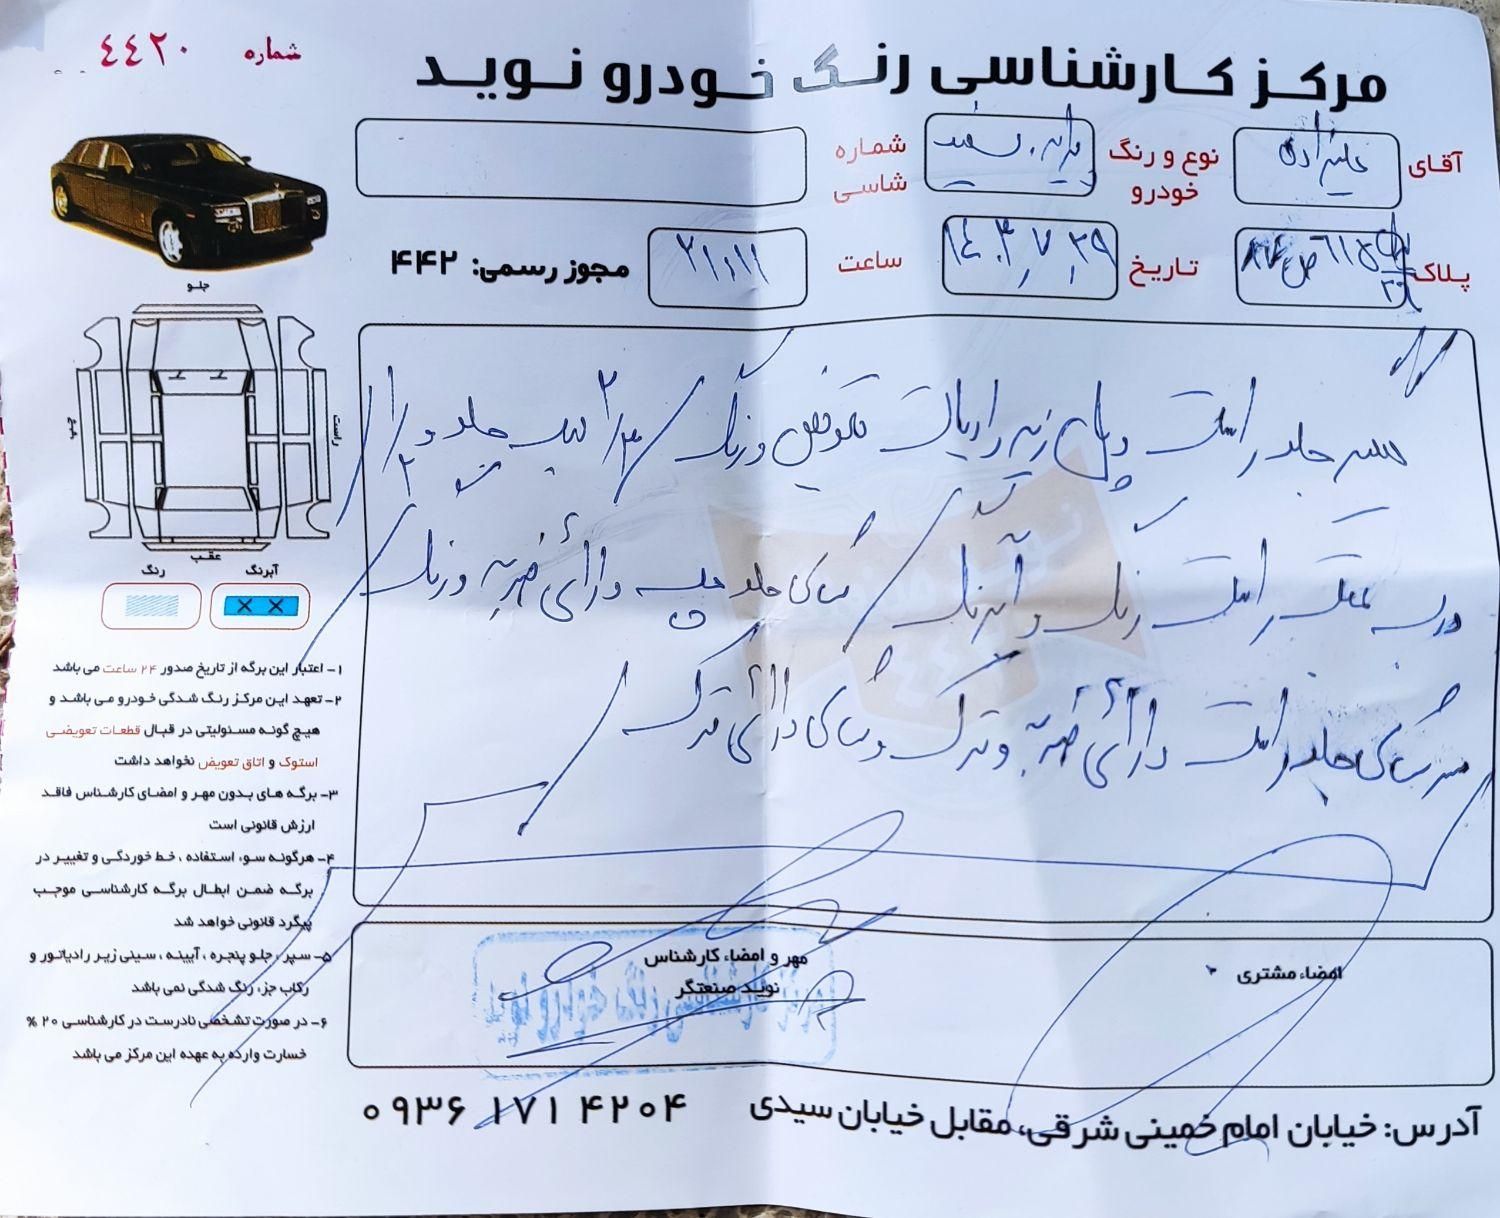 شماره ٤٤٢٠
مرکز کارشناسی رنگ خودرو نوید
آقای علیزاده
نوع و رنگ خودرو پراید سفید
شماره شاسی
پلاک
تاریخ ۱۴۰۳٫۷٫۲۹
ساعت ۲۱٫۱۱
مجوز رسمی: ۴۴۲
جلو
راست
چپ
عقب
رنگ
آبرنگ
جلد راست و پل زیر رادیات تعویض و رنگ / ۲/۳ جلد و ۱/۲
درب عقب راست رنگ و آبرنگ / شاسی جلو چپ دارای ضربه و رنگ
سرشاسی جلو راست دارای ضربه و ترک و شاسی دارای ترک
۱- اعتبار این برگه از تاریخ صدور ۲۴ ساعت می باشد
۲- تعهد این مرکز رنگ شدگی خودرو می باشد و
هیچ گونه مسئولیتی در قبال قطعات تعویضی
استوک و اتاق تعویض نخواهد داشت
۳- برگه های بدون مهر و امضای کارشناس فاقد
ارزش قانونی است
۴- هرگونه سوء استفاده ، خط خوردگی و تغییر در
برگه ضمن ابطال برگه کارشناسی موجب
پیگرد قانونی خواهد شد
۵- سپر ، جلو پنجره ، آیینه ، سینی زیر رادیاتور و
رکاب جزء رنگ شدگی نمی باشد
۶- در صورت تشخصی نادرست در کارشناسی ۲۰ %
خسارت وارده به عهده این مرکز می باشد
امضاء مشتری
مهر و امضاء کارشناس
نوید صنعتگر
آدرس: خیابان امام خمینی شرقی، مقابل خیابان سیدی
۰۹۳۶ ۱۷۱ ۴۲۰۴